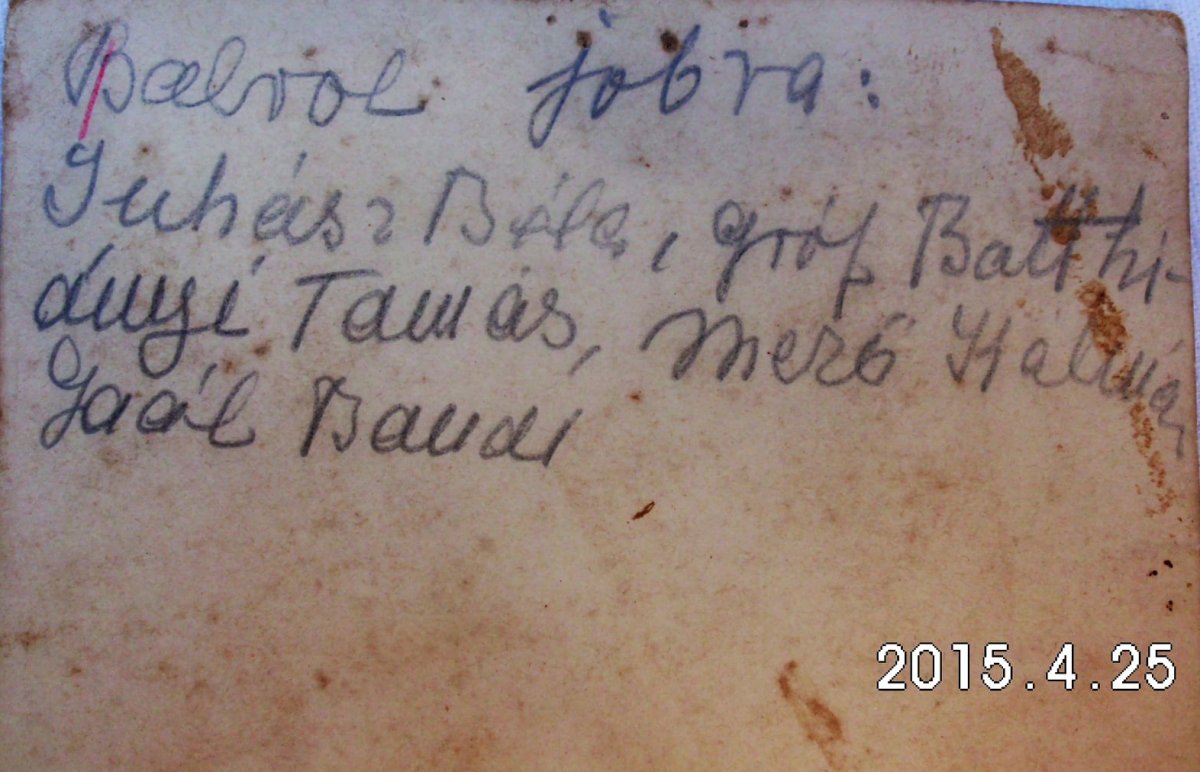 Balrol jobra:
Juhász Béla, gróf Batthi-
ányi Tamás, Mező Kálmán
Gaál Bandi
2015.4.25